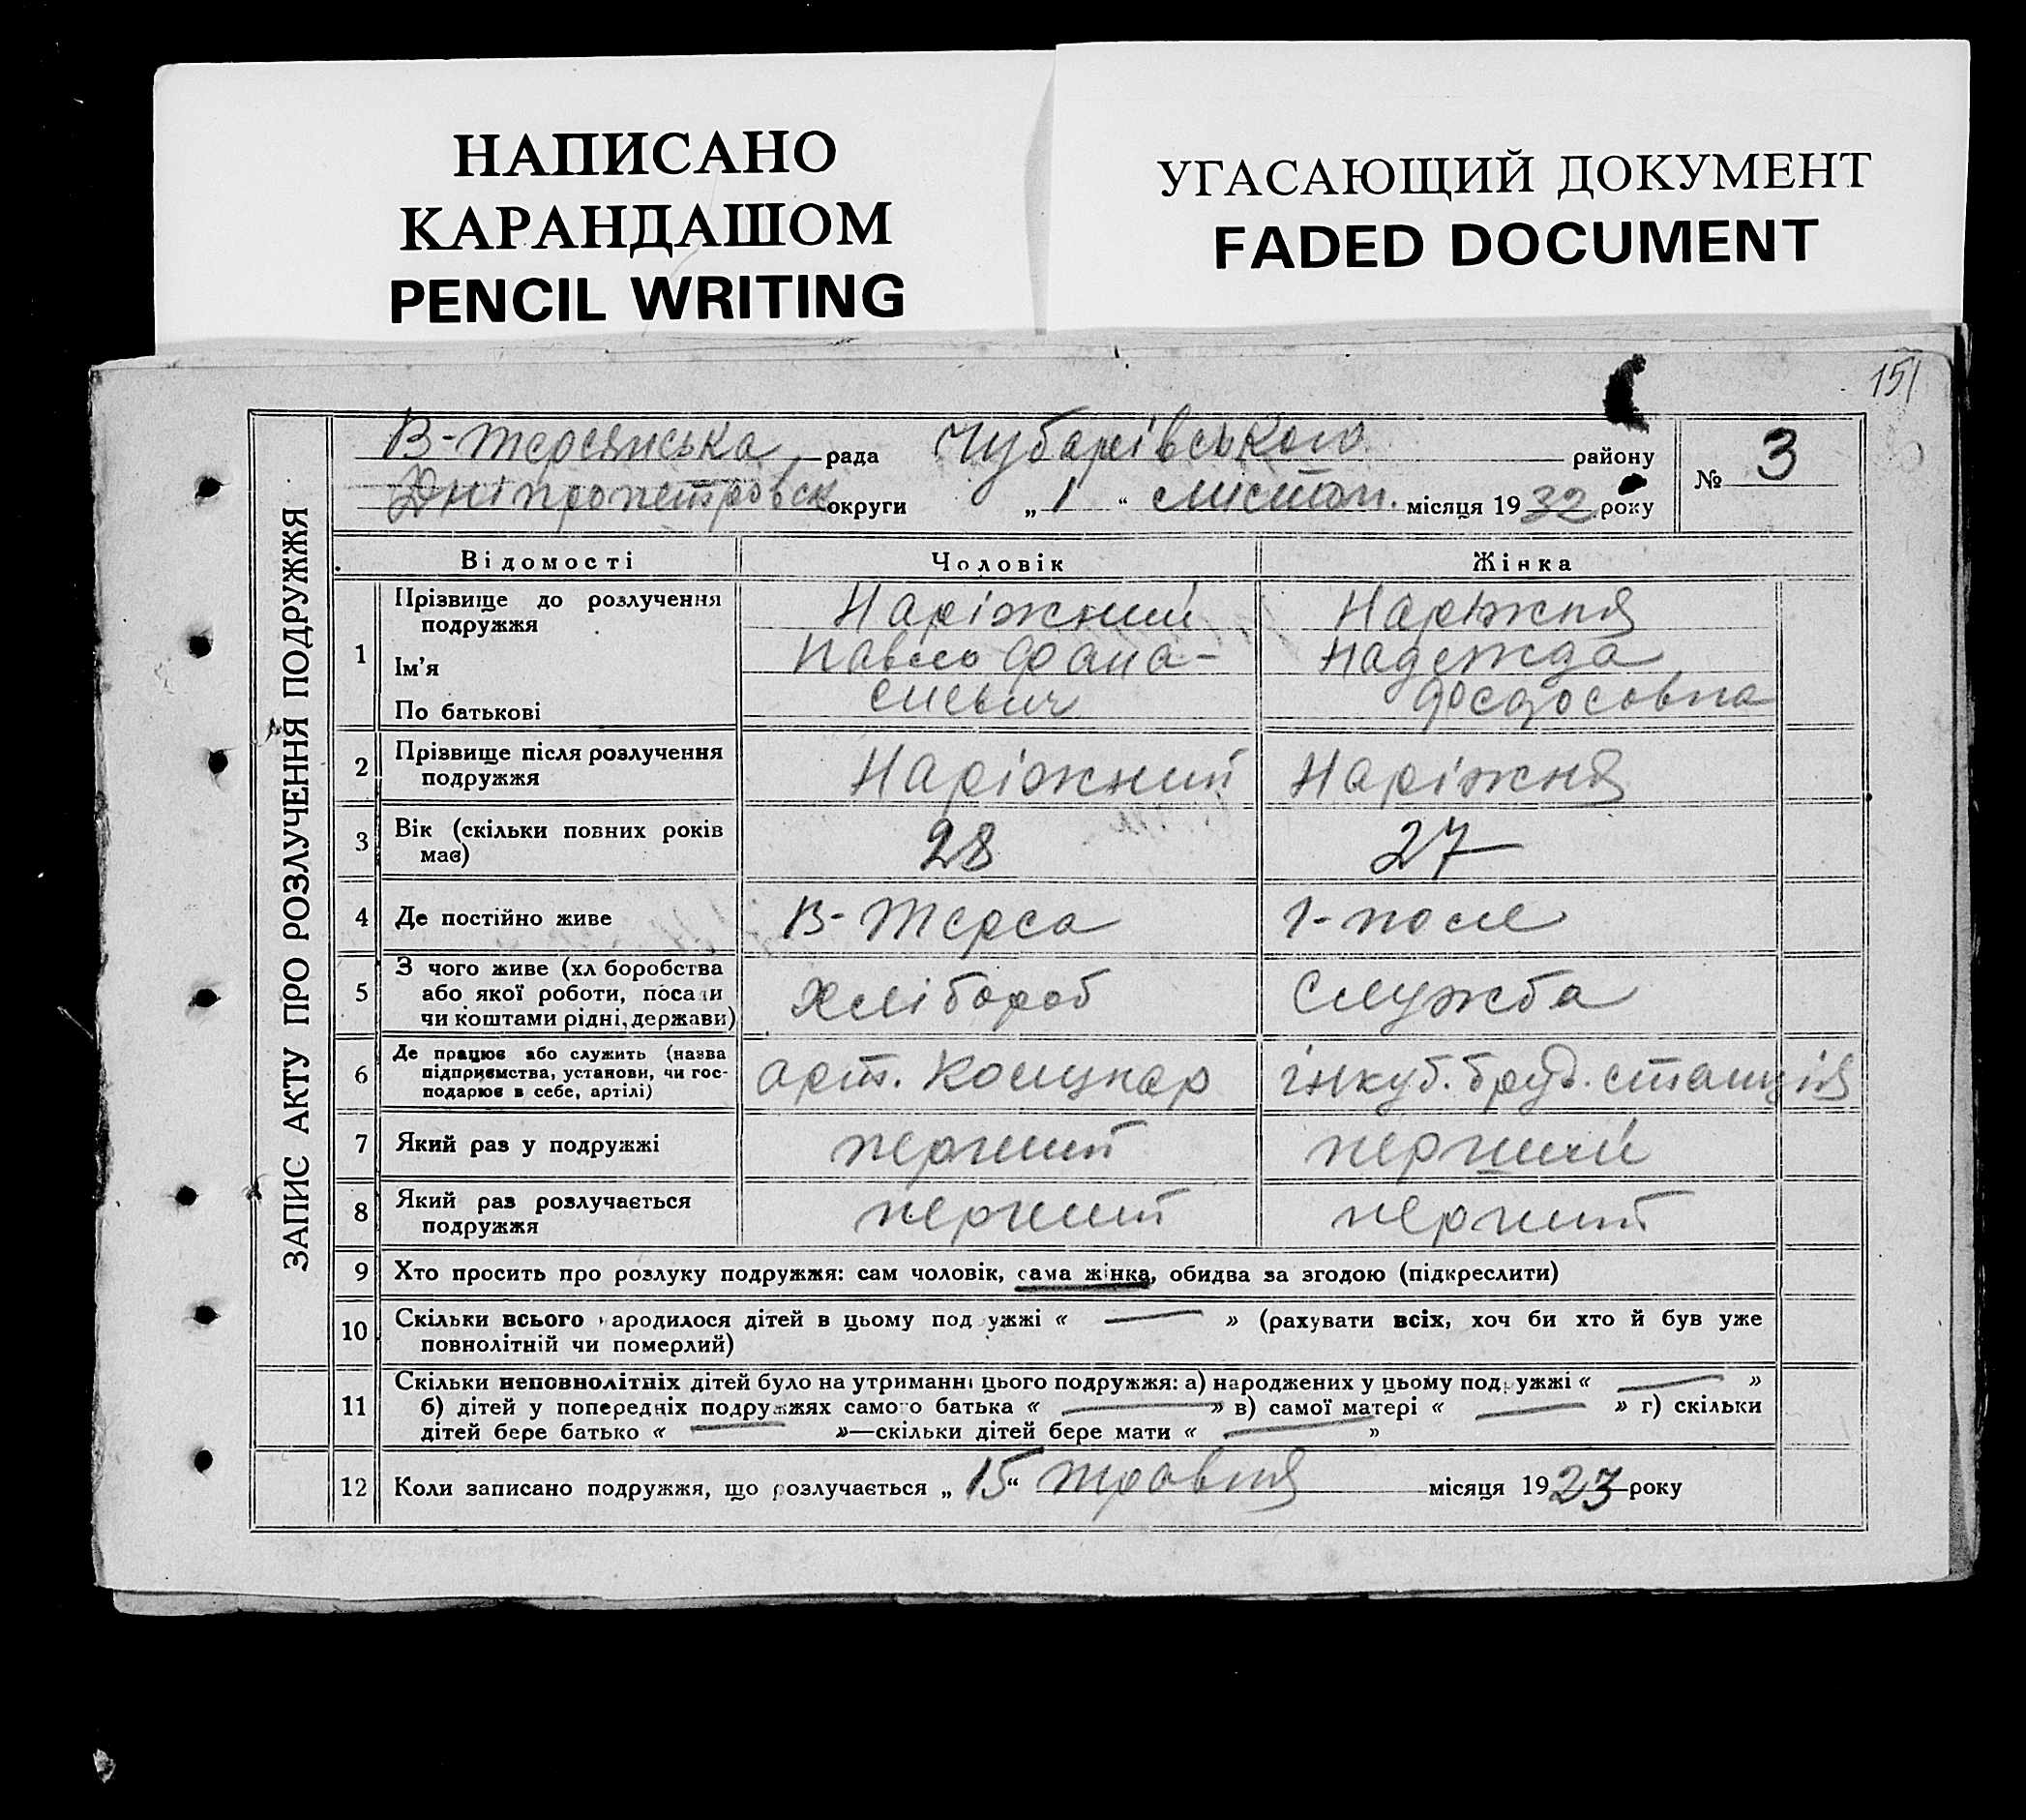 НАПИСАНО
КАРАНДАШОМ
PENCIL WRITING
УГАСАЮЩИЙ ДОКУМЕНТ
FADED DOCUMENT
151
ЗАПИС АКТУ ПРО РОЗЛУЧЕННЯ ПОДРУЖЖЯ
В-Терсянська рада Чубарівського району
Дніпропетровск округи „ 1 “ листоп. місяця 1932 року
№ 3
Відомості Чоловік Жінка
1 Прізвище до розлучення подружжя Наріжний Наріжня
Ім'я Павло Фана- Надежда
По батькові сиевич Федосовна
2 Прізвище після розлучення подружжя Наріжний Наріжня
3 Вік (скільки повних років має) 28 27
4 Де постійно живе В-Терса Г-поле
5 З чого живе (хлiборобства або якої роботи, посади чи коштами рідні, держави) Хлібороб Служба
6 Де працює або служить (назва підприємства, установи, чи господарює в себе, артілі) арт. інкуб. бруд. станція
7 Який раз у подружжі перший перший
8 Який раз розлучається подружжя перший перший
9 Хто просить про розлуку подружжя: сам чоловік, сама жінка, обидва за згодою (підкреслити)
10 Скільки всього народилося дітей в цьому подружжі « — » (рахувати всіх, хоч би хто й був уже
повнолітній чи померлий)
11 Скільки неповнолітніх дітей було на утриманні цього подружжя: а) народжених у цьому подружжі « — »
б) дітей у попередніх подружжях самого батька « — » в) самої матері « — » г) скільки
дітей бере батько « — »—скільки дітей бере мати « — »
12 Коли записано подружжя, що розлучається „ 15 “ травня місяця 1923 року